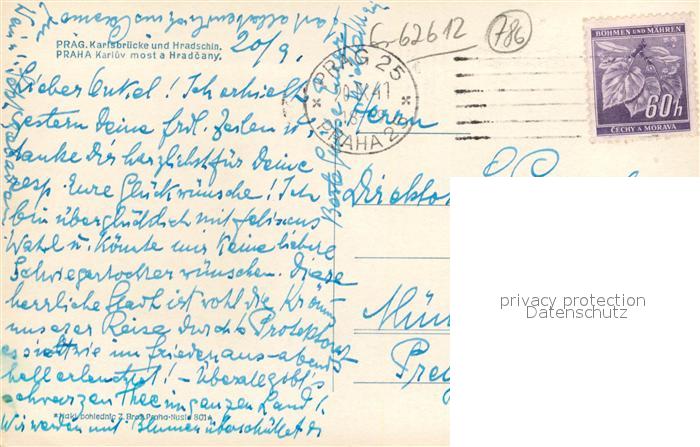 G-62612
786
PRAG. Karlsbrücke und Hradschin.
PRAHA Karlův most a Hradčany.
20/9.
PRAG 25
41
PRAHA 25
BÖHMEN UND MÄHREN
60h
ČECHY A MORAVA
Lieber Onkel! Ich erhielt
gestern Deine frdl. Zeilen u.
danke dir herzlichst für Deine
resp. Eure Glückwünsche! Ich
bin überglücklich mit
Wahl u. könnte mir keine liebere
Schwiegertochter wünschen. Diese
herrliche Stadt ist wohl die
unserer Reise durch's Protektorat
es sieht wie im Frieden aus - abends
hell erleuchtet! - Überall gibt's
schwarzen Thee im ganzen Land!
Wir werden mit Blumen überschüttet
Herrn
Direktor
Mün
privacy protection
Datenschutz
*Nakl. pohlednic Z. Brož, Praha-Nusle 801